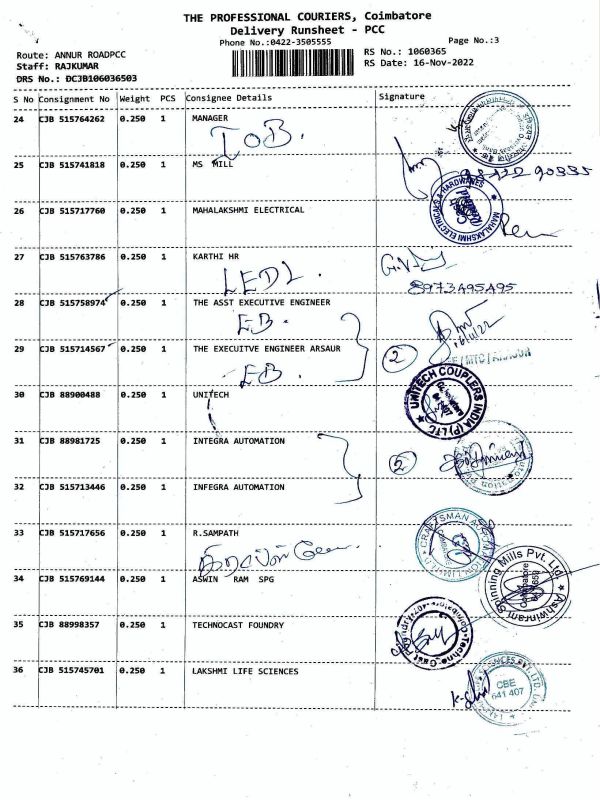 THE PROFESSIONAL COURIERS, Coimbatore
Delivery Runsheet - PCC
Phone No.:0422-3505555
Page No.:3
Route: ANNUR ROADPCC
RS No.: 1060365
Staff: RAJKUMAR
RS Date: 16-Nov-2022
DRS No.: DCJB106036503
S No Consignment No Weight PCS Consignee Details Signature
24 CJB 515764262 0.250 1 MANAGER
IOB.
25 CJB 515741818 0.250 1 MS MILL
26 CJB 515717760 0.250 1 MAHALAKSHMI ELECTRICAL
MAHALAKSHMI ELECTRICALS & HARDWARES
27 CJB 515763786 0.250 1 KARTHI HR
LEDL.
8973495495
28 CJB 515758974 0.250 1 THE ASST EXECUTIVE ENGINEER
EB.
16/11/22
29 CJB 515714567 0.250 1 THE EXECUITVE ENGINEER ARSAUR
2
EB.
30 CJB 88900488 0.250 1 UNITECH
UNITECH COUPLERS INDIA (P) LTD
31 CJB 88981725 0.250 1 INTEGRA AUTOMATION
2
32 CJB 515713446 0.250 1 INFEGRA AUTOMATION
33 CJB 515717656 0.250 1 R.SAMPATH
CRAFTSMAN
34 CJB 515769144 0.250 1 ASWIN RAM SPG
Ashwinram Spinning Mills Pvt. Ltd.
Coimbatore
35 CJB 88998357 0.250 1 TECHNOCAST FOUNDRY
36 CJB 515745701 0.250 1 LAKSHMI LIFE SCIENCES
CBE
641 407